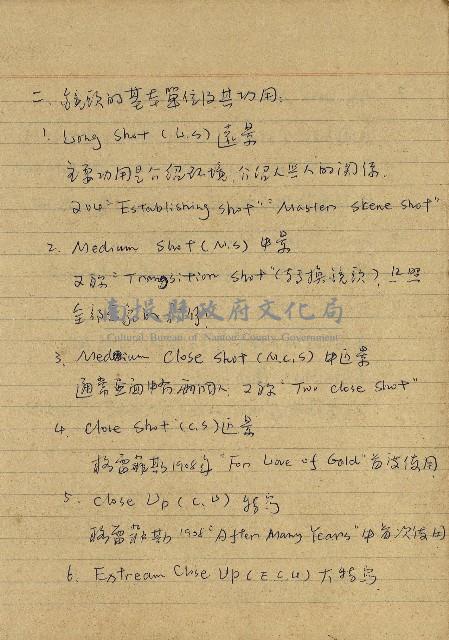 二、鏡頭的基本單位及其功用:
1. Long Shot (L.S) 遠景
主要功用是介紹环境,介紹人與人的関係.
又叫"Establishing shot" "Master Skene shot"
2. Medium Shot (M.S) 中景
又称"Transition Shot"(轉換鏡頭),
南投縣政府文化局
Cultural Bureau of Nantou County Government
3. Medium Close Shot (M.C.S) 中近景
通常画面中有兩個人,又称"Two Close Shot"
4. Close Shot (C.S) 近景
格雷菲斯1908年"For Love of Gold"首次使用
5. Close Up (C.U) 特寫
格雷菲斯1908"After Many Years"中首次使用
6. Extream Close Up (E.C.U) 大特寫